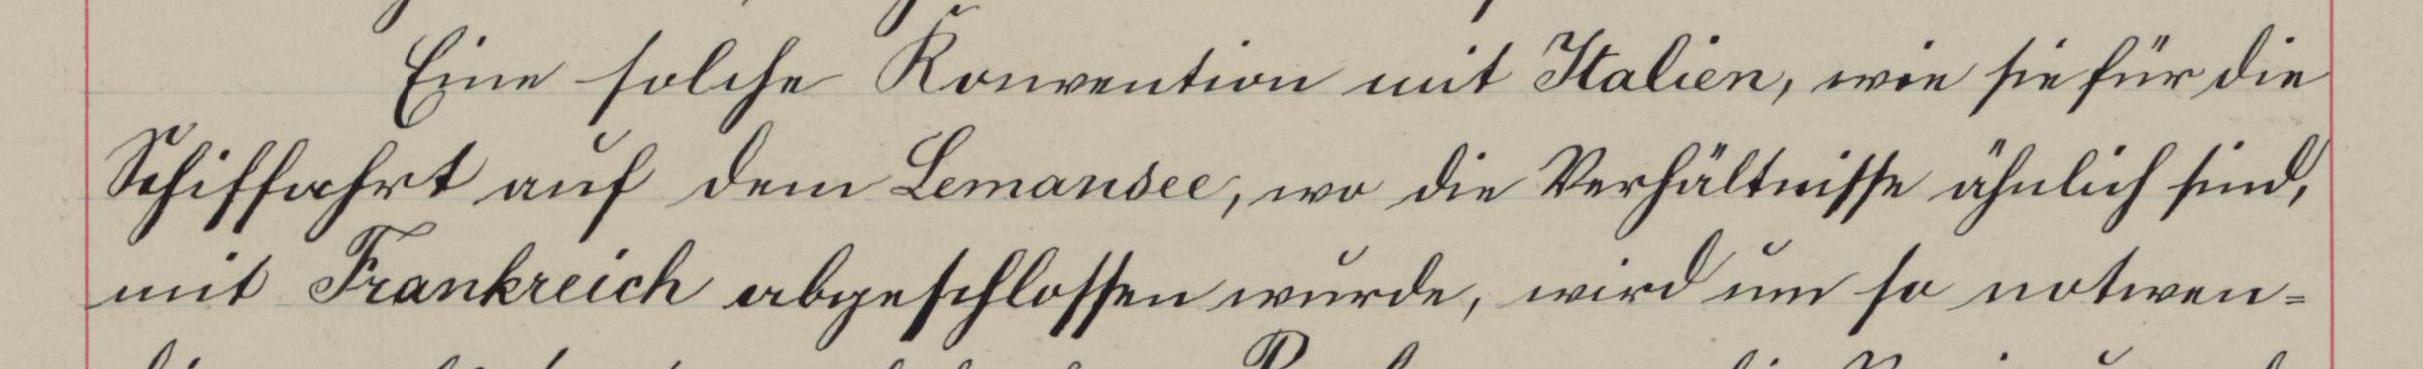 Eine solche Konvention mit Italien, wie sie für die
Schiffahrt auf dem Lemansee, wo die Verhältnisse ähnlich sind,
mit Frankreich abgeschlossen wurde, wird um so notwen=